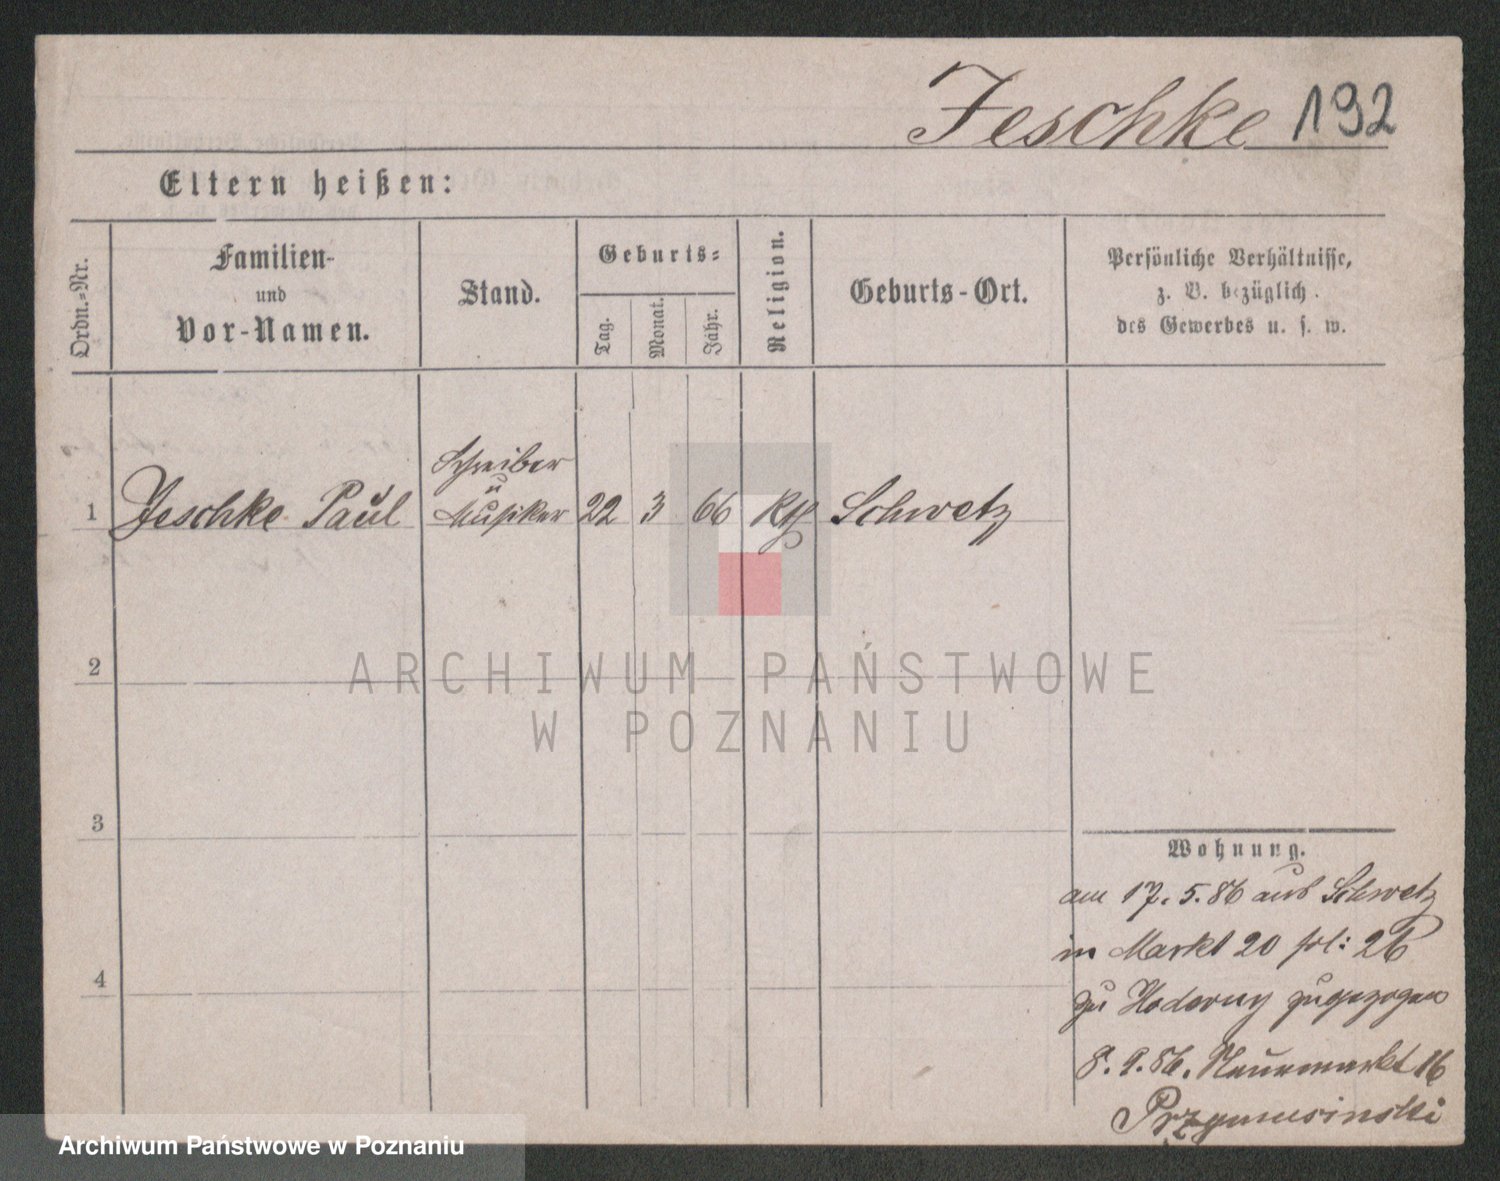 Jeschke 192
Eltern heißen:
Ordn.=Nr.
Familien-
und
Vor-Namen.
Stand.
Geburts=
Tag.
Monat.
Jahr.
Religion.
Geburts-Ort.
Persönliche Verhältnisse,
z. B. bezüglich
des Gewerbes u. s. w.
1 Jeschke Paul
Schreiber
u
Musiker
22 3 66 kth Schwetz
2
3
4
Wohnung.
am 17.5.86 aus Schwetz
in Markt 20 fol: 26
zu zugezogen
8.9.86. Neuermarkt 16
Przymusinski
ARCHIWUM PAŃSTWOWE
W POZNANIU
Archiwum Państwowe w Poznaniu